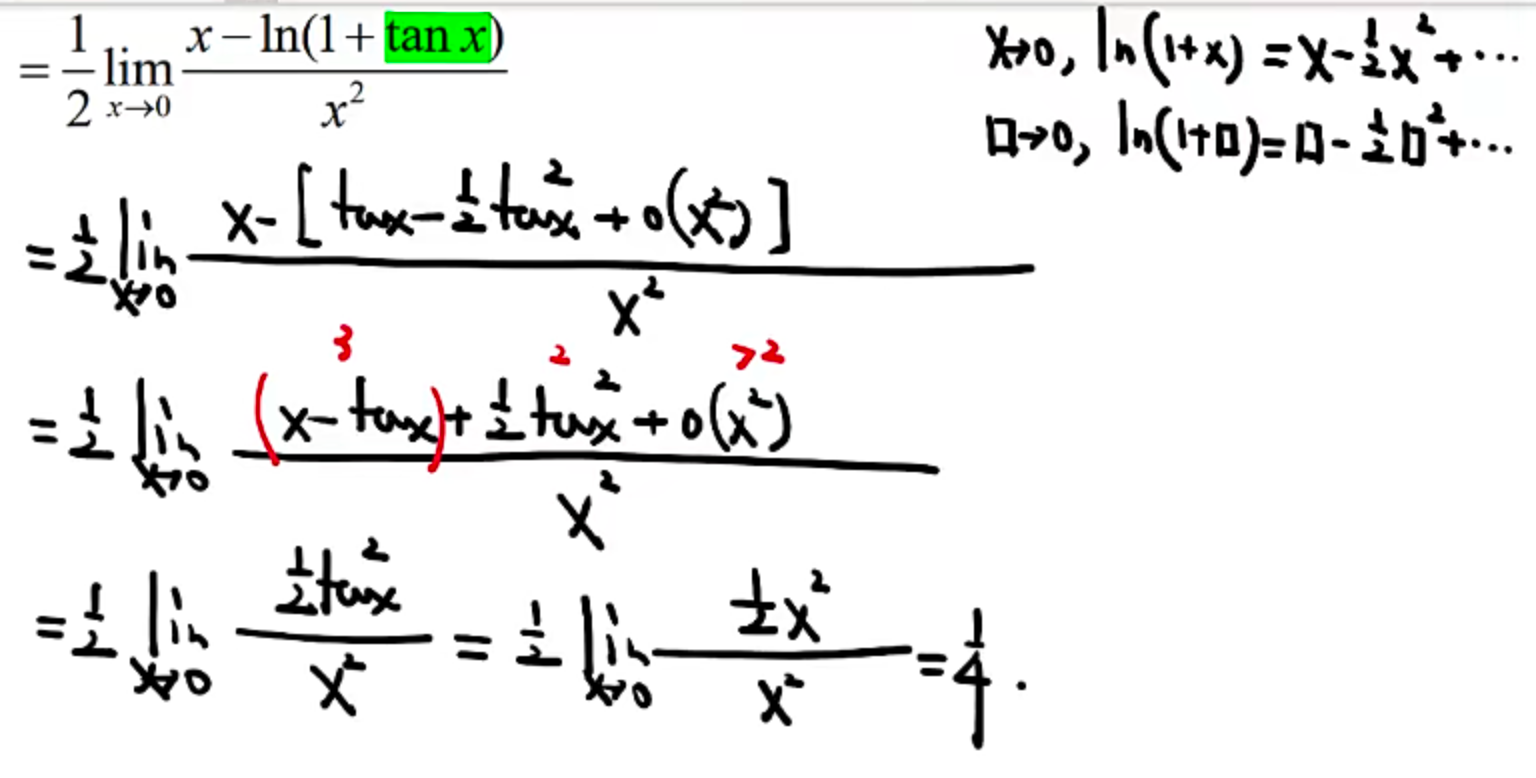 = 1/2 lim_{x→0} (x − ln(1 + tan x)) / x²
x→0, ln(1+x) = x − 1/2 x² + ⋯
□→0, ln(1+□) = □ − 1/2 □² + ⋯
= 1/2 lim_{x→0} (x − [tan x − 1/2 tan² x + o(x²)]) / x²
3 2 >2
= 1/2 lim_{x→0} ((x − tan x) + 1/2 tan² x + o(x²)) / x²
= 1/2 lim_{x→0} (1/2 tan² x) / x² = 1/2 lim_{x→0} (1/2 x²) / x² = 1/4 .